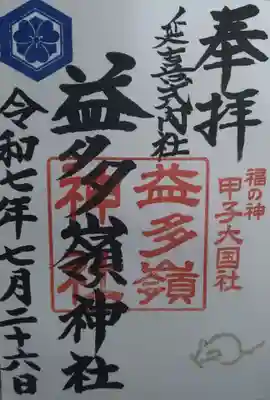 奉拝
延喜式内社
福の神
甲子大国社
益多嶺神社
益多嶺
神社
令和七年七月二十六日